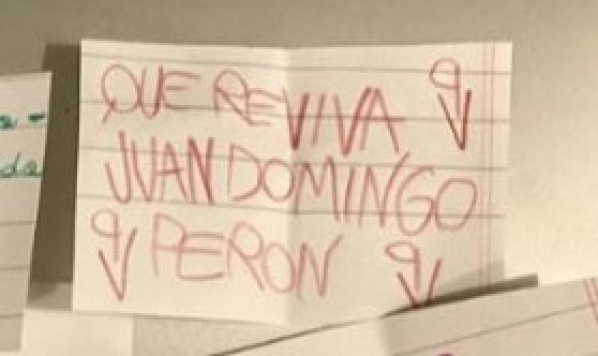 QUE REVIVA
JUAN DOMINGO
PERON